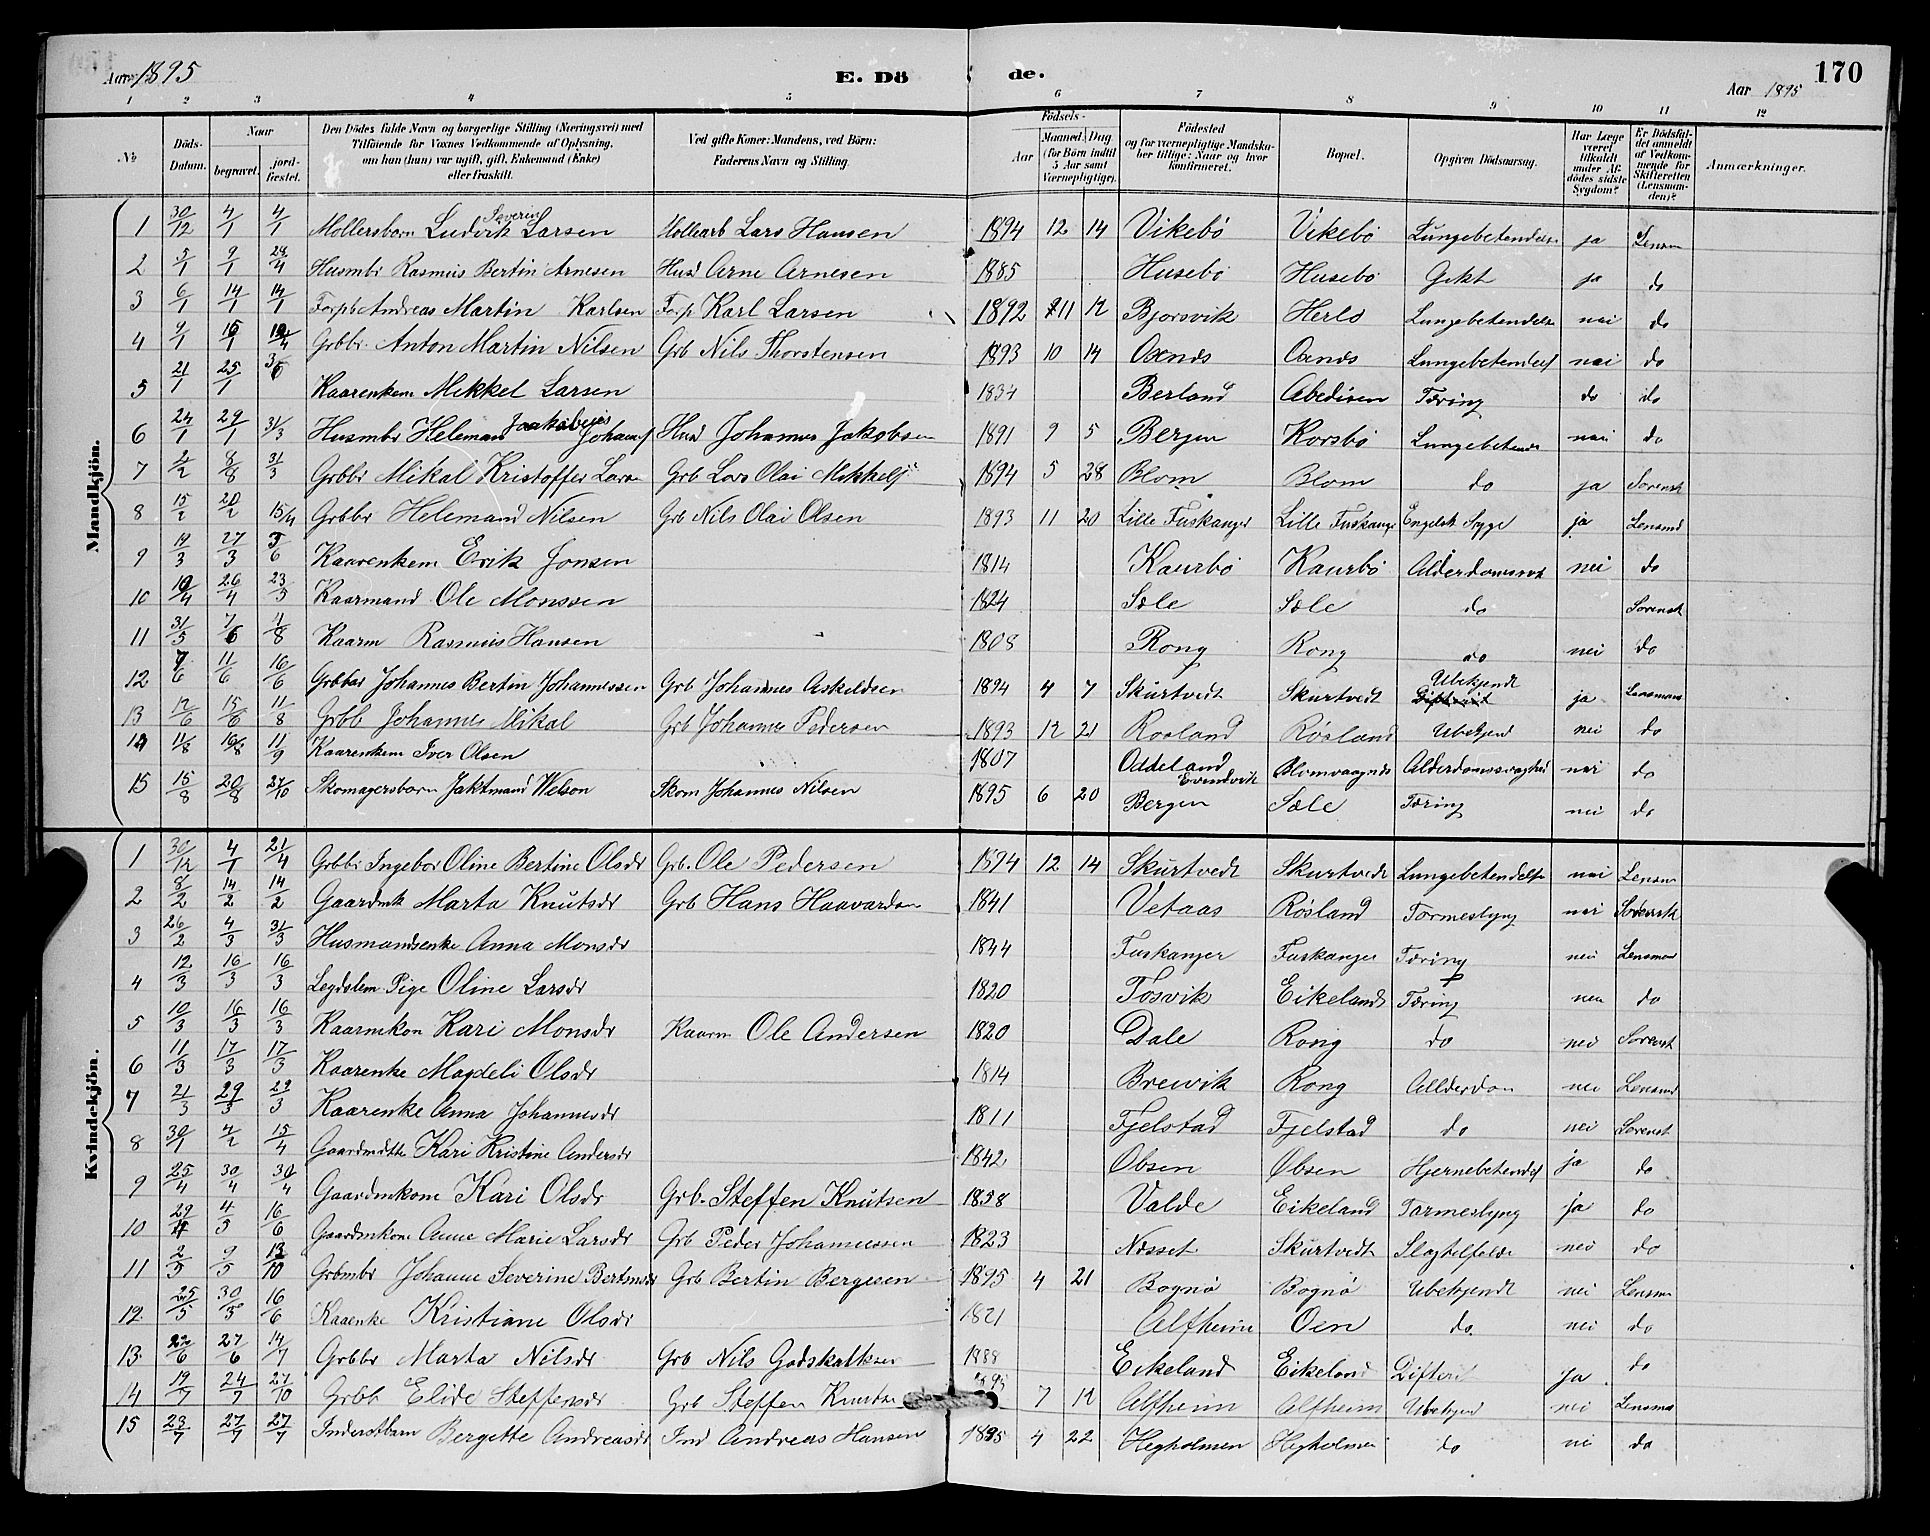 Aar 1895 E. Dö de. 170
Aar 1895
1 2 3 4 5 6 7 8 9 10 11 12
№ Döds-Datum. Naar begravet. jordfæstet. Den Dödes fulde Navn og borgerlige Stilling (Næringsvei) med Tilföiende for Voxnes Vedkommende af Oplysning, om han (hun) var ugift, gift, Enkemand (Enke) eller fraskilt. Ved gifte Koner: Mandens, ved Börn: Faderens Navn og Stilling. Födsels- Aar Maaned Dag (for Börn indtil 5 Aar samt Værnepligtige). Födested og for værnepligtige Mandskaber tillige: Naar og hvor konfirmeret. Bopæl. Opgiven Dödsaarsag. Har Læge været tilkaldt under Afdödes sidste Sygdom? Er Dödsfaldet anmeldt af Vedkommende for Skifteretten (Lensmanden)? Anmærkninger.
Mandkjön.
1 30/12 4/1 4/1 Möllersbarn Ludvik Severin Larsen Möllearb Lars Hansen 1894 12 14 Vikebö Vikebö Lungebetendelse ja Lensm
2 5/1 9/1 Husmbr Rasmus Bertin Arnesen Husd Arne Arnesen 1885 Husebö Husebö Gikt ja do
3 6/1 14/1 14/1 Forpb Andreas Martin Karlsen Forp Karl Larsen 1892 11 12 Bjorsvik Herlö Lungebetendelse nei do
4 9/1 Grbbr. Anton Martin Nilsen Grb Nils Thorstensen 1893 10 14 Oxnes Oxnes Lungebetendels nei do
5 21/1 25/1 Kaarenkem Mikkel Larsen 1834 Berland Abedisen Tæring do do
6 24/1 29/1 31/3 Husmbr Helemand Jakobsjes Johans Husd Johannes Jakobsen 1891 9 5 Bergen Korsbö Lungebetends nei do
7 2/2 8/8 31/3 Grbbr Mikal Kristoffer Larse Grb Lars Olai Mikkels 1894 5 28 Blom Blom do ja Sorensk
8 15/2 20/2 15/4 Grbbr Helemand Nilsen Grb Nils Olai Olsen 1893 11 20 Lille Fuskanger Lille Fuskange Engelsk Syge ja Lensmd
9 19/3 27/3 Kaarenkem Erik Jonsen 1814 Kaurbö Kaurbö Alderdomssvk nei do
10 26/4 23/5 Kaarmand Ole Monssen 1824 Sæle Sæle do Sorensk
11 31/5 7/6 4/8 Kaarm Rasmus Hansen 1808 Rong Rong do nei do
12 7/6 11/6 16/6 Grbbar Johannes Bertin Johannessen Grb Johannes Askeldsen 1894 4 7 Skurtvedt Skurtvedt Ubekjendt ja Lensmand
13 12/6 15/6 11/8 Grbb Johannes Mikal Grb Johannes Pedersen 1893 12 21 Rosland Rösland Ubekjend nei do
14 11/8 16/8 11/9 Kaarenkem Iver Olsen 1807 Oddeland Evindvik Blomvaagnæs Alderdomssvaghed nei do
15 15/8 20/8 27/10 Skomagersbarn Jaktmand Welson Skom Johannes Nilsen 1895 6 20 Bergen Sæle Tæring nei do
Kvindekjön.
1 30/12 4/1 21/4 Grbbr Ingebor Oline Bertine Olsdr Grb. Ole Pedersen 1894 12 14 Skurtvedt Skurtvedt Lungebetendelse nei Lensm
2 8/2 14/2 14/2 Gaardmk Marta Knutsdr Grb Hans Haavardsen 1841 Vetaas Rösland Tarmeslyng nei Sorensk
3 26/2 4/3 31/3 Husmandsenke Anna Monsdr 1844 Fuskanger Fuskanger Tæring nei Lensman
4 12/3 16/3 16/3 Legdslem Pige Oline Larsdr 1820 Tosvik Eikeland Tæring nei do
5 10/3 16/3 16/3 Kaarmkon Kari Monsdr Kaarm Ole Andersen 1820 Dale Rong do nei Sorensk
6 11/3 17/3 17/3 Kaarenke Magdeli Olsdr 1814 Breivik Rong Allderdom nei Lensmd
7 21/3 29/3 29/3 Kaarenke Anna Johannesdr 1811 Fjelstad Fjelstad do nei Sorensk
8 30/1 4/2 15/4 Gaardmdtte Kari Kristine Andersdr 1842 Obsen Obsen Hjernebetendels ja do
9 25/4 30/4 30/4 Gaardmkone Kari Olsdr Grb. Steffen Knutsen 1858 Valde Eikeland Tarmeslyng ja do
10 29/4 4/5 16/6 Gaardmkone Anne Marie Larsdr Grb Peder Johannessen 1823 Næsset Skurtvedt Slagtelfælde nei do
11 2/5 9/5 13/10 Grbmbr Johanne Severine Bertinsdr Grb Bertin Bergesen 1895 4 21 Bognö Bognö Ubekjendt nei Lensm
12 25/5 30/5 16/6 Kaaenke Kristiane Olsdr 1821 Alfheim Oen do. nei do
13 22/6 27/6 14/7 Grbbr Marta Nilsdr Grb Nils Godskalksen 1888 Eikeland Eikeland Difteri ja do
14 19/7 24/7 27/10 Grbb Elide Steffensdr Grb Steffen Knutse 1895 7 12 Alfheim Alfheim Ubekjend nei Lensma
15 23/7 27/7 27/7 Inderstbarn Bergitte Andreasdr Ind Andreas Hansen 1895 4 22 Hegholmen Hegholmen do nei do